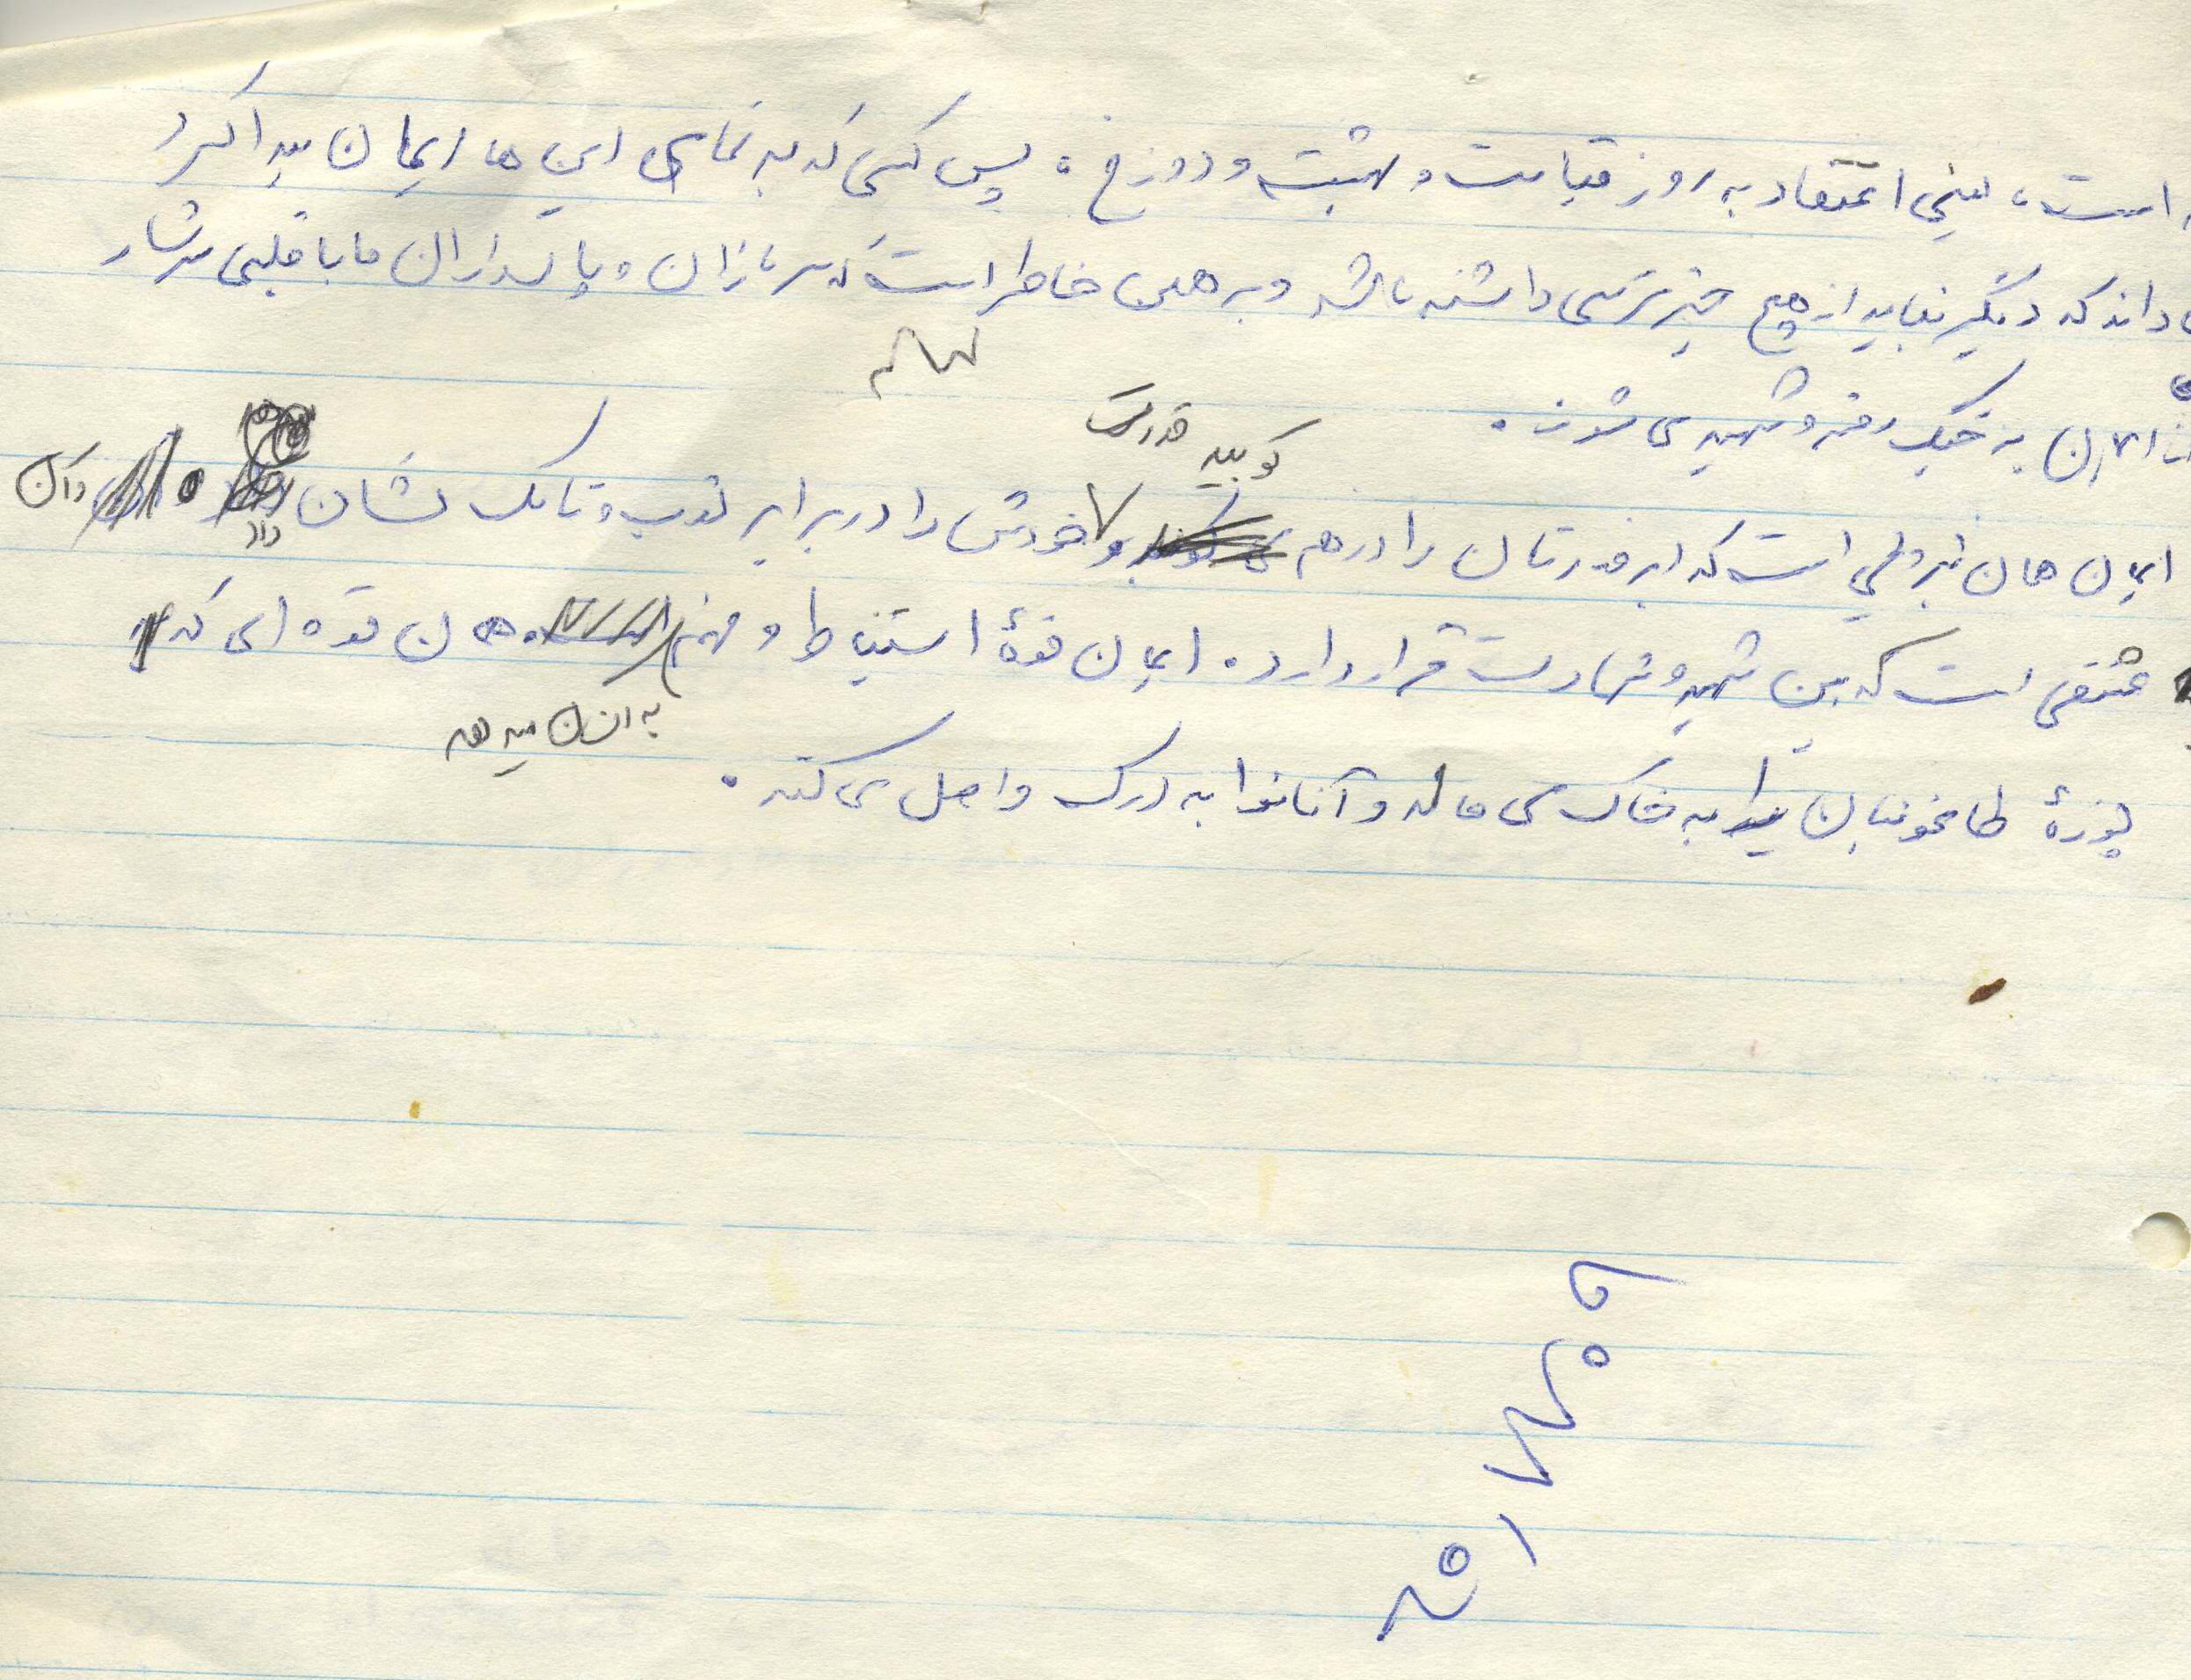 است، یعنی اعتقاد به روز قیامت و بهشت و دوزخ. پس کسی که به تمامی این ها ایمان پیدا کرد
داند که دیگر نباید از هیچ چیز ترسی داشته باشد و به همین خاطر است که سربازان و پاسداران ما با قلبی سرشار
از ایمان به جنگ رفته و شهید می شوند.
کوبید قدرت
ایمان همان نیرویی است که ابرقدرتان را درهم و خودش را در برابر توپ و تانک نشان داد وآن
عشقی است که بین شهید و شهادت قرار دارد. ایمان قوهٔ استنباط و فهم همان قوه ای که
به انسان میدهد
پوزهٔ طاغوتیان را به خاک می مالد و آنانرا به درک واصل می کند.